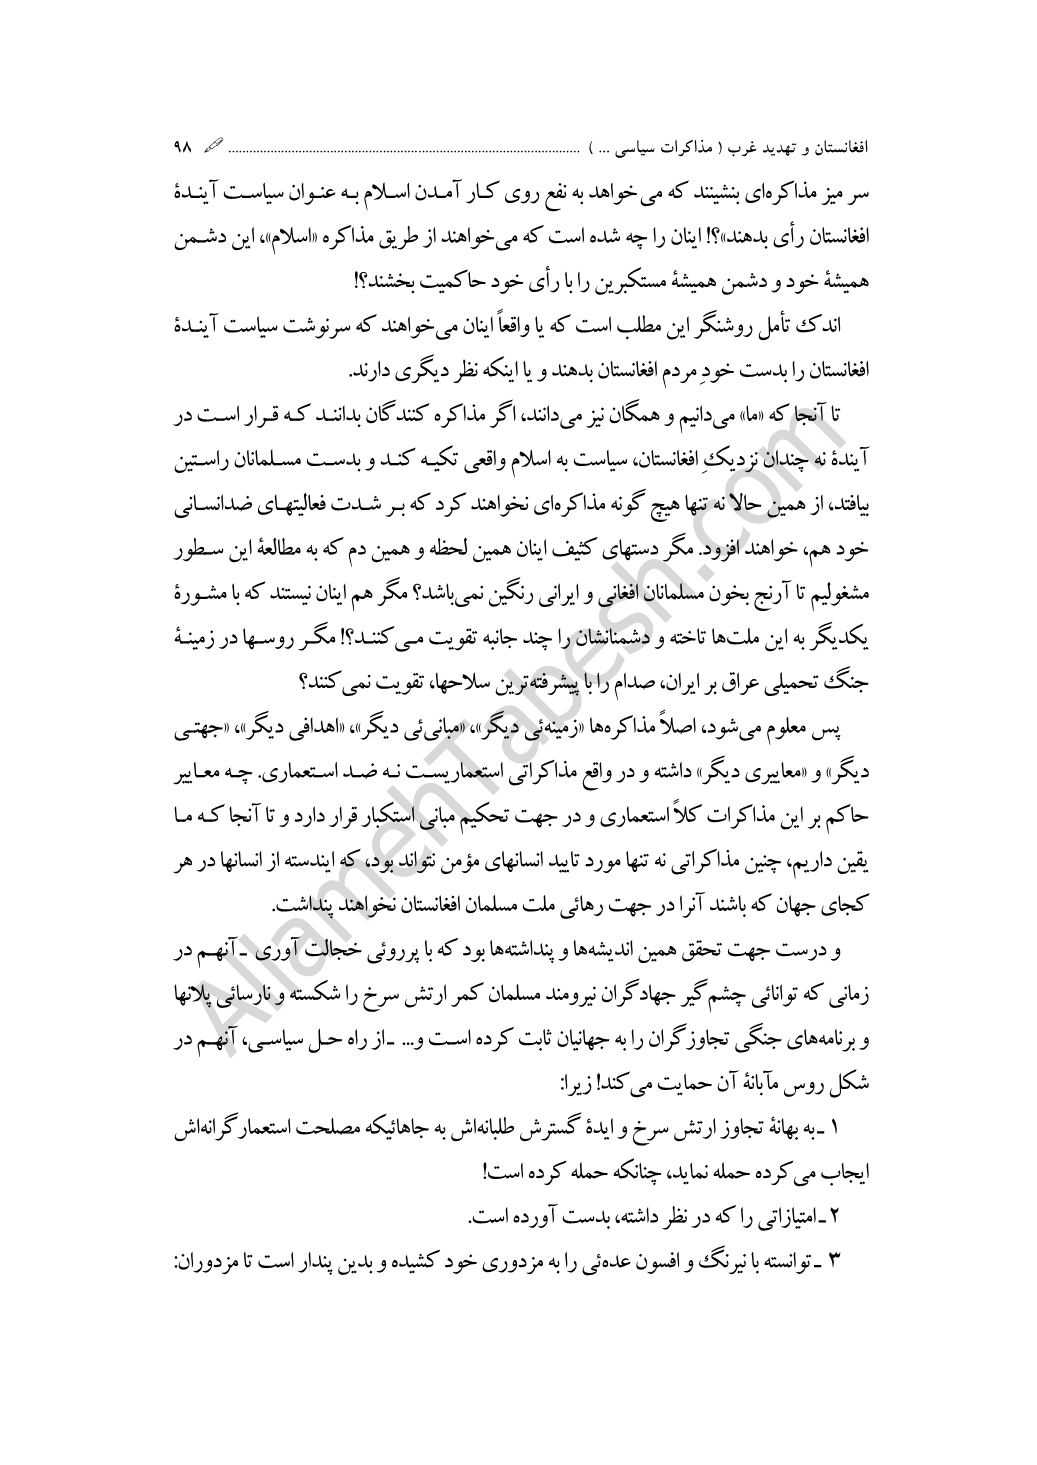 افغانستان و تهدید غرب ( مذاکرات سیاسی ... ) .................................................................................................... ۹۸
سر میز مذاکره‌ای بنشینند که می‌خواهد به نفع روی کار آمدن اسلام به عنوان سیاست آیندۀ
افغانستان رأی بدهند»؟! اینان را چه شده است که می‌خواهند از طریق مذاکره «اسلام»، این دشمن
همیشۀ خود و دشمن همیشۀ مستکبرین را با رأی خود حاکمیت بخشند؟!
اندک تأمل روشنگر این مطلب است که یا واقعاً اینان می‌خواهند که سرنوشت سیاست آیندۀ
افغانستان را بدست خودِ مردم افغانستان بدهند و یا اینکه نظر دیگری دارند.
تا آنجا که «ما» می‌دانیم و همگان نیز می‌دانند، اگر مذاکره کنندگان بدانند که قرار است در
آیندۀ نه چندان نزدیکِ افغانستان، سیاست به اسلام واقعی تکیه کند و بدست مسلمانان راستین
بیافتد، از همین حالا نه تنها هیچ گونه مذاکره‌ای نخواهند کرد که بر شدت فعالیتهای ضدانسانی
خود هم، خواهند افزود. مگر دستهای کثیف اینان همین لحظه و همین دم که به مطالعۀ این سطور
مشغولیم تا آرنج بخون مسلمانان افغانی و ایرانی رنگین نمی‌باشد؟ مگر هم اینان نیستند که با مشورۀ
یکدیگر به این ملت‌ها تاخته و دشمنانشان را چند جانبه تقویت می‌کنند؟! مگر روسها در زمینۀ
جنگ تحمیلی عراق بر ایران، صدام را با پیشرفته‌ترین سلاحها، تقویت نمی‌کنند؟
پس معلوم می‌شود، اصلاً مذاکره‌ها «زمینه‌ئی دیگر»، «مبانی‌ئی دیگر»، «اهدافی دیگر»، «جهتی
دیگر» و «معاییری دیگر» داشته و در واقع مذاکراتی استعماریست نه ضد استعماری. چه معاییر
حاکم بر این مذاکرات کلاً استعماری و در جهت تحکیم مبانی استکبار قرار دارد و تا آنجا که ما
یقین داریم، چنین مذاکراتی نه تنها مورد تایید انسانهای مؤمن نتواند بود، که ایندسته از انسانها در هر
کجای جهان که باشند آنرا در جهت رهائی ملت مسلمان افغانستان نخواهند پنداشت.
و درست جهت تحقق همین اندیشه‌ها و پنداشته‌ها بود که با پرروئی خجالت آوری ـ آنهم در
زمانی که توانائی چشم‌گیر جهادگران نیرومند مسلمان کمر ارتش سرخ را شکسته و نارسائی پلانها
و برنامه‌های جنگی تجاوزگران را به جهانیان ثابت کرده است و... ـ از راه حل سیاسی، آنهم در
شکل روس مآبانۀ آن حمایت می‌کند! زیرا:
۱ ـ به بهانۀ تجاوز ارتش سرخ و ایدۀ گسترش طلبانه‌اش به جاهائیکه مصلحت استعمارگرانه‌اش
ایجاب می‌کرده حمله نماید، چنانکه حمله کرده است!
۲ ـ امتیازاتی را که در نظر داشته، بدست آورده است.
۳ ـ توانسته با نیرنگ و افسون عده‌ئی را به مزدوری خود کشیده و بدین پندار است تا مزدوران:
AllamehTabesh.com